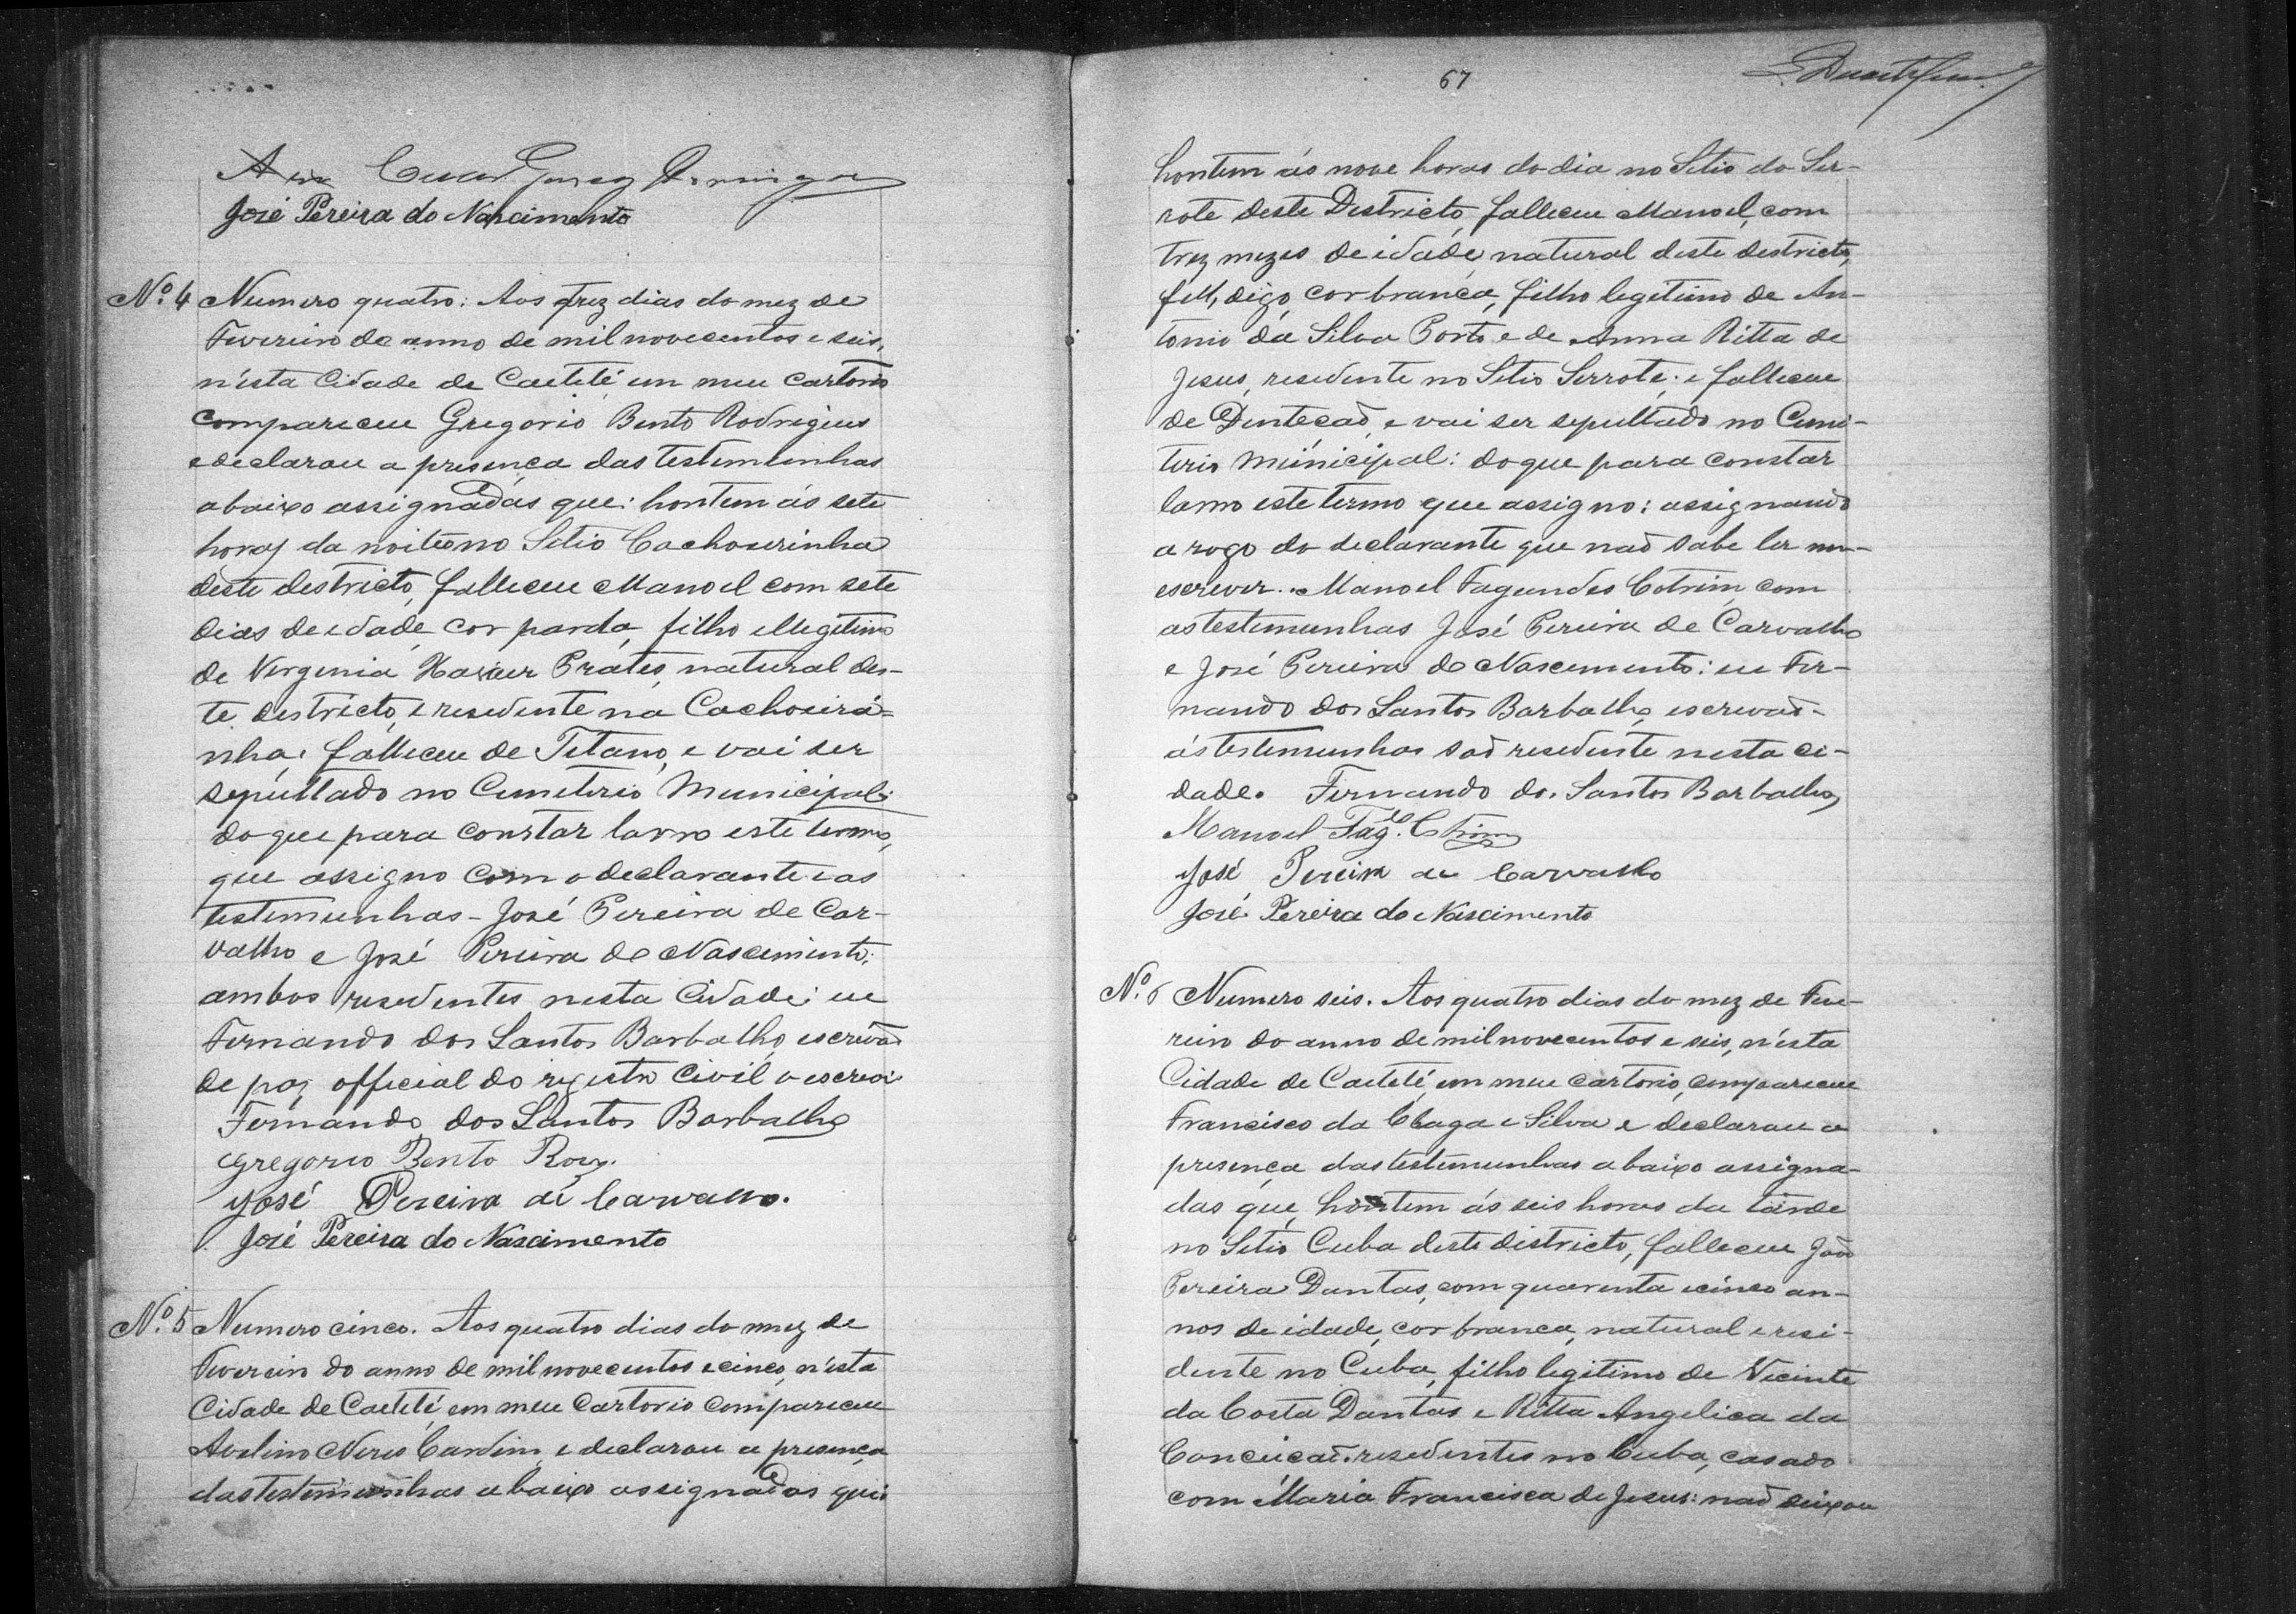 José Pereira do Nascimento
Nº 4 Numero quatro: Aos trez dias do mez de
Fevereiro do anno de mil novecentos e seis,
n'esta Cidade de Caeteté, em meu Cartorio
compareceu Gregorio Bento Rodrigues
e declarou a presença das testemunhas
abaixo assignadas que: hontem ás sete
horas da noite no Sitio Cachoeirinha
deste destricto, falleceu Manoel com sete
dias de edade, cor parda, filho illegitimo
de Virginia Xavier Prates, natural des-
te destricto, e resedente na Cachoeiri-
nha: falleceu de Tetano, e vai ser
sepultado no Cemeterio Municipal:
do que para constar lavro este termo,
que assigno com o declarante e as
testemunhas - José Pereira de Car-
valho e José Pereira do Nascimento:
ambos resedentes nesta Cidade: eu
Fernando dos Santos Barbalho, escrivão
de paz official do registro Civil o escrevi
Fernando dos Santos Barbalho
Gregorio Bento Roiz.
José Pereira de Carvalho.
José Pereira do Nascimento
Nº 5 Numero cinco. Aos quatro dias do mez de
Fevereiro do anno de mil novecentos e cinco, n'esta
Cidade de Caeteté, em meu Cartorio compareceu
Avelino Neres Cardim, e declarou a presença
das testemunhas abaixo assignadas que:
67
hontem ás nove horas do dia no Sitio do Ser-
rote deste Destricto, falleceu Manoel, com
trez mezes de idade, natural deste destricto,
fill, digo, cor branca, filho legitimo de An-
tonio da Silva Porto e de Anna Ritta de
Jesus, resedente no Sitio Serrote: e falleceu
de Dentecaõ, e vai ser sepultado no Cemi-
terio Municipal: do que para constar
lavro este termo que assigno: assignando
a rogo do declarante que naõ sabe ler nem
escrever. Manoel Fagundes Cotrim, com
as testemunhas José Pereira de Carvalho
e José Pereira do Nascemento: eu Fer-
nando dos Santos Barbalho, escrevaõ-
ás testemunhas saõ resedente nesta ci-
dade. Fernando dos Santos Barbalho,
Manoel Fag.es Cotrim
José Pereira de Carvalho
José Pereira do Nascimento
Nº 6 Numero seis. Aos quatro dias do mez de Feve-
reiro do anno de mil novecentos e seis, n'esta
Cidade de Caeteté, em meu cartorio, compareceu
Francisco da Chaga e Silva e declarou a
presença das testemunhas abaixo assigna-
das que, hontem ás seis horas da tarde
no Sitio Cuba deste districto, falleceu João
Pereira Dantas, com quarenta e cinco an-
nos de idade, cor branca, natural e resi-
dente no Cuba, filho legitimo de Vicente
da Costa Dantas e Ritta Angelica da
Conceicaõ. resedentes no Cuba, casado
com Maria Francisca de Jesus: naõ deixou